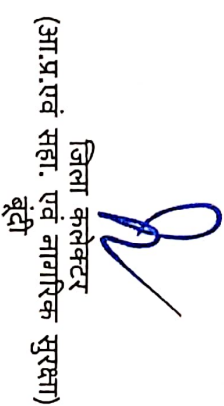 जिला कलेक्टर
(आ.प्र.एवं सहा. एवं नागरिक सुरक्षा)
बून्दी